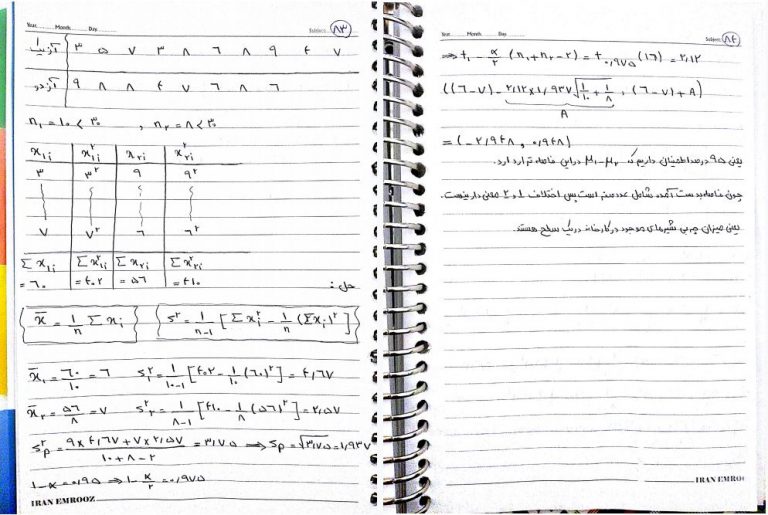 Year. Month. Day. Subject: ۸۳
آزمیت ۱ ۳ ۵ ۷ ۳ ۸ ۶ ۸ ۹ ۴ ۷
آزدو ۹ ۸ ۸ ۴ ۷ ۶ ۸ ۶
n₁ = ۱۰ < ۳۰ , n₂ = ۸ < ۳۰
x₁ᵢ x²₁ᵢ x₂ᵢ x²₂ᵢ
۳ ۳² ۹ ۹²
۷ ۷² ۶ ۶²
Σx₁ᵢ Σx²₁ᵢ Σx₂ᵢ Σx²₂ᵢ
= ۶۰ = ۴۰۲ = ۵۶ = ۴۱۰ حل:
x̄ = 1/n Σxᵢ S² = 1/(n-1) [Σxᵢ² - 1/n (Σxᵢ)²]
x̄₁ = ۶۰/۱۰ = ۶ S₁² = 1/(۱۰-۱) [۴۰۲ - 1/۱۰ (۶۰)²] = ۴,۶۷
x̄₂ = ۵۶/۸ = ۷ S₂² = 1/(۸-۱) [۴۱۰ - 1/۸ (۵۶)²] = ۲,۵۷
Sp² = (۹×۴,۶۷+۷×۲,۵۷)/(۱۰+۸-۲) = ۳,۷۵ ⇒ Sp = √۳,۷۵ = ۱,۹۳۷
۱-α = ۰,۹۵ ⇒ ۱-α/۲ = ۰,۹۷۵
IRAN EMROOZ
Year. Month. Day. Subject: ۸۴
⇒ t₁-α/۲ (n₁+n₂-۲) = t۰,۹۷۵ (۱۶) = ۲,۱۲
((۶-۷) - ۲,۱۲×۱,۹۳۷√(1/۱۰+1/۸) , (۶-۷)+A)
A
= (-۲,۹۴۸ , ۰,۹۴۸)
یعنی ۹۵ درصد اطمینان داریم که μ₁-μ₂ در این فاصله قرار دارد.
چون فاصله بدست آمده شامل عدد صفر است پس اختلاف ۱ و ۲ معنی دار نیست.
یعنی میزان چربی شیرهای موجود در کارخانه در یک سطح هستند.
IRAN EMRO